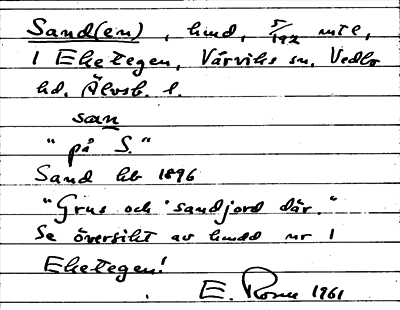 Sand(en), hmd, 5/192 mtl,
1 Eketegen, Värviks sn, Vedbo
hd. Älvsb. l.
san
"på S."
Sand hb 1896
"Grus och sandjord där."
Se översikt av hmdd nr 1
Eketegen!
E. 1961